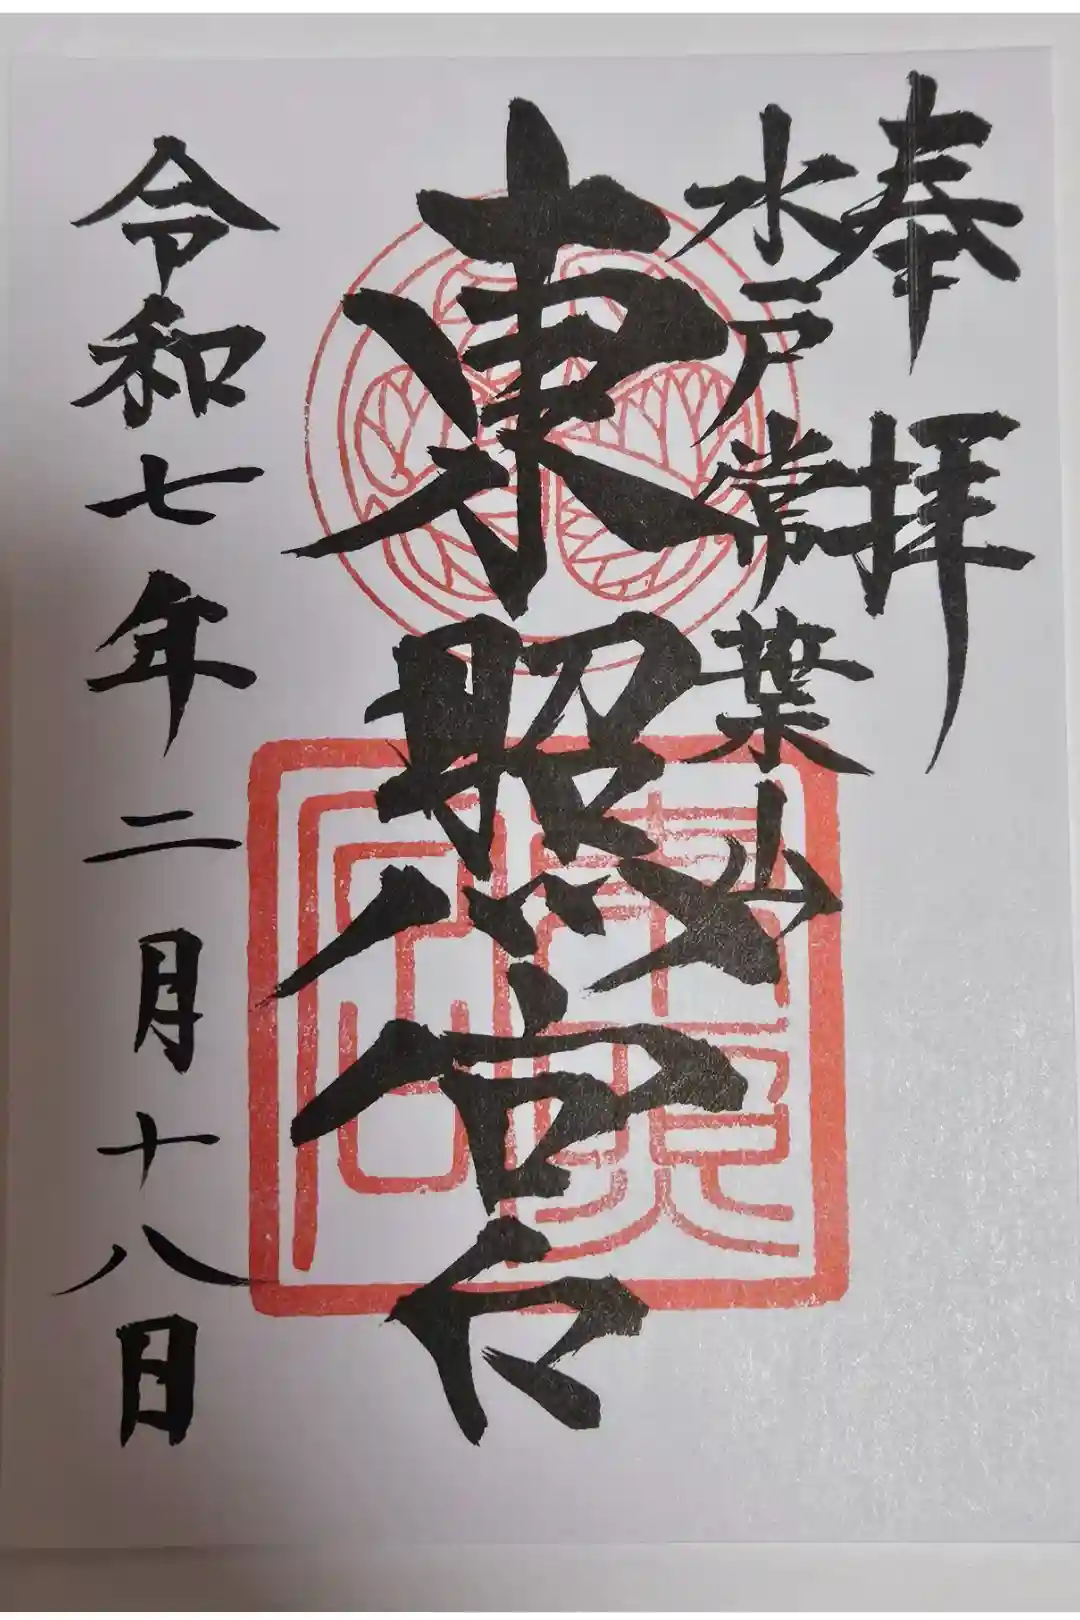 奉拝
水戸常葉山
東照宮
令和七年二月十八日